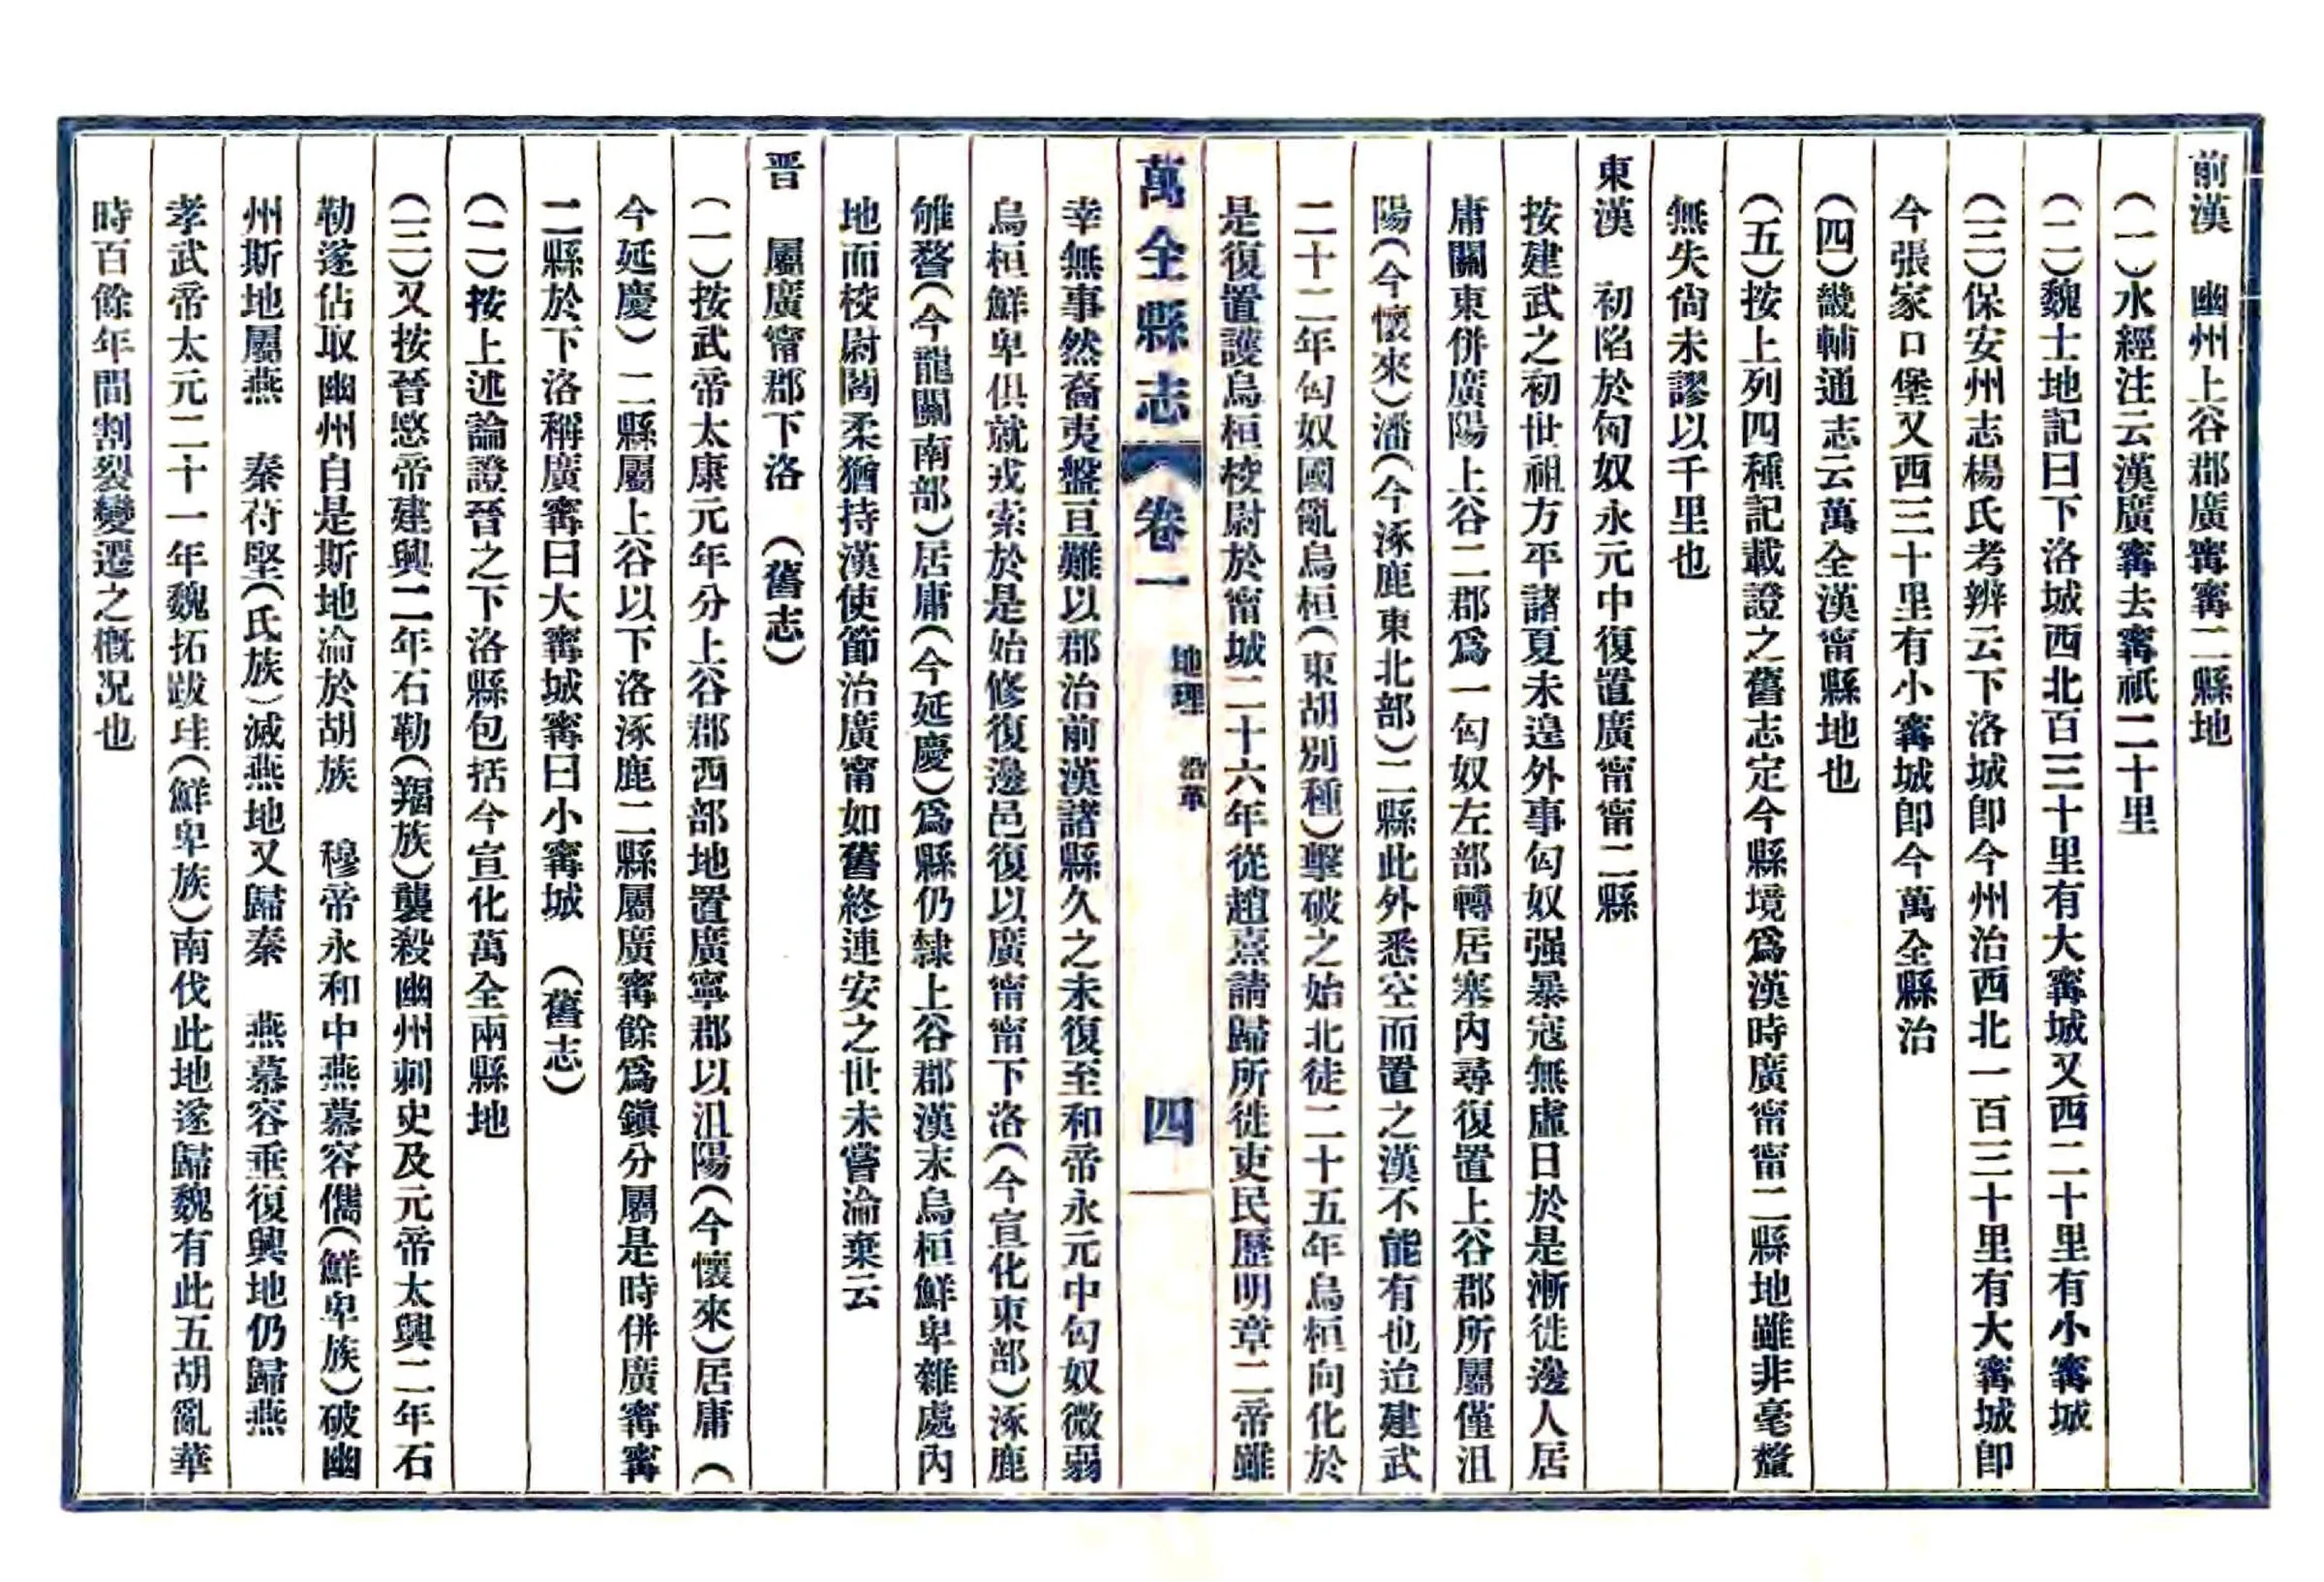 前漢　幽州上谷郡廣寗寗二縣地
（一）水經注云漢廣寗去寗祇二十里
（二）魏土地記曰下洛城西北百三十里有大寗城又西二十里有小寗城
（三）保安州志楊氏考辨云下洛城即今州治西北一百三十里有大寗城即
今張家口堡又西三十里有小寗城即今萬全縣治
（四）畿輔通志云萬全漢甯縣地也
（五）按上列四種記載證之舊志定今縣境爲漢時廣甯甯二縣地雖非毫釐
無失尙未謬以千里也
東漢　初陷於匈奴永元中復置廣甯甯二縣
按建武之初世祖方平諸夏未遑外事匈奴强暴寇無虛日於是漸徙邊人居
庸關東併廣陽上谷二郡爲一匈奴左部轉居塞內尋復置上谷郡所屬僅沮
陽（今懷來）潘（今涿鹿東北部）二縣此外悉空而置之漢不能有也迨建武
二十二年匈奴國亂烏桓（東胡別種）擊破之始北徒二十五年烏桓向化於
是復置護烏桓校尉於甯城二十六年從趙憙請歸所徙吏民歷明章二帝雖
萬全縣志　卷一　地理　沿革　四
幸無事然裔夷盤亘難以郡治前漢諸縣久之未復至和帝永元中匈奴微弱
烏桓鮮卑俱就戎索於是始修復邊邑復以廣甯甯下洛（今宣化東部）涿鹿
雊瞀（今龍關南部）居庸（今延慶）爲縣仍隸上谷郡漢末烏桓鮮卑雜處內
地而校尉閻柔猶持漢使節治廣甯如舊終連安之世未嘗淪棄云
晋　屬廣甯郡下洛　（舊志）
（一）按武帝太康元年分上谷郡西部地置廣寧郡以沮陽（今懷來）居庸（
今延慶）二縣屬上谷以下洛涿鹿二縣屬廣寗餘爲鎭分屬是時併廣寗寗
二縣於下洛稱廣寗曰大寗城寗曰小寗城　（舊志）
（二）按上述論證晉之下洛縣包括今宣化萬全兩縣地
（三）又按晉愍帝建興二年石勒（羯族）襲殺幽州刺史及元帝太興二年石
勒遂佔取幽州自是斯地淪於胡族　穆帝永和中燕慕容儁（鮮卑族）破幽
州斯地屬燕　秦苻堅（氏族）滅燕地又歸秦　燕慕容垂復興地仍歸燕
孝武帝太元二十一年魏拓跋珪（鮮卑族）南伐此地遂歸魏有此五胡亂華
時百餘年間割裂變遷之槪况也